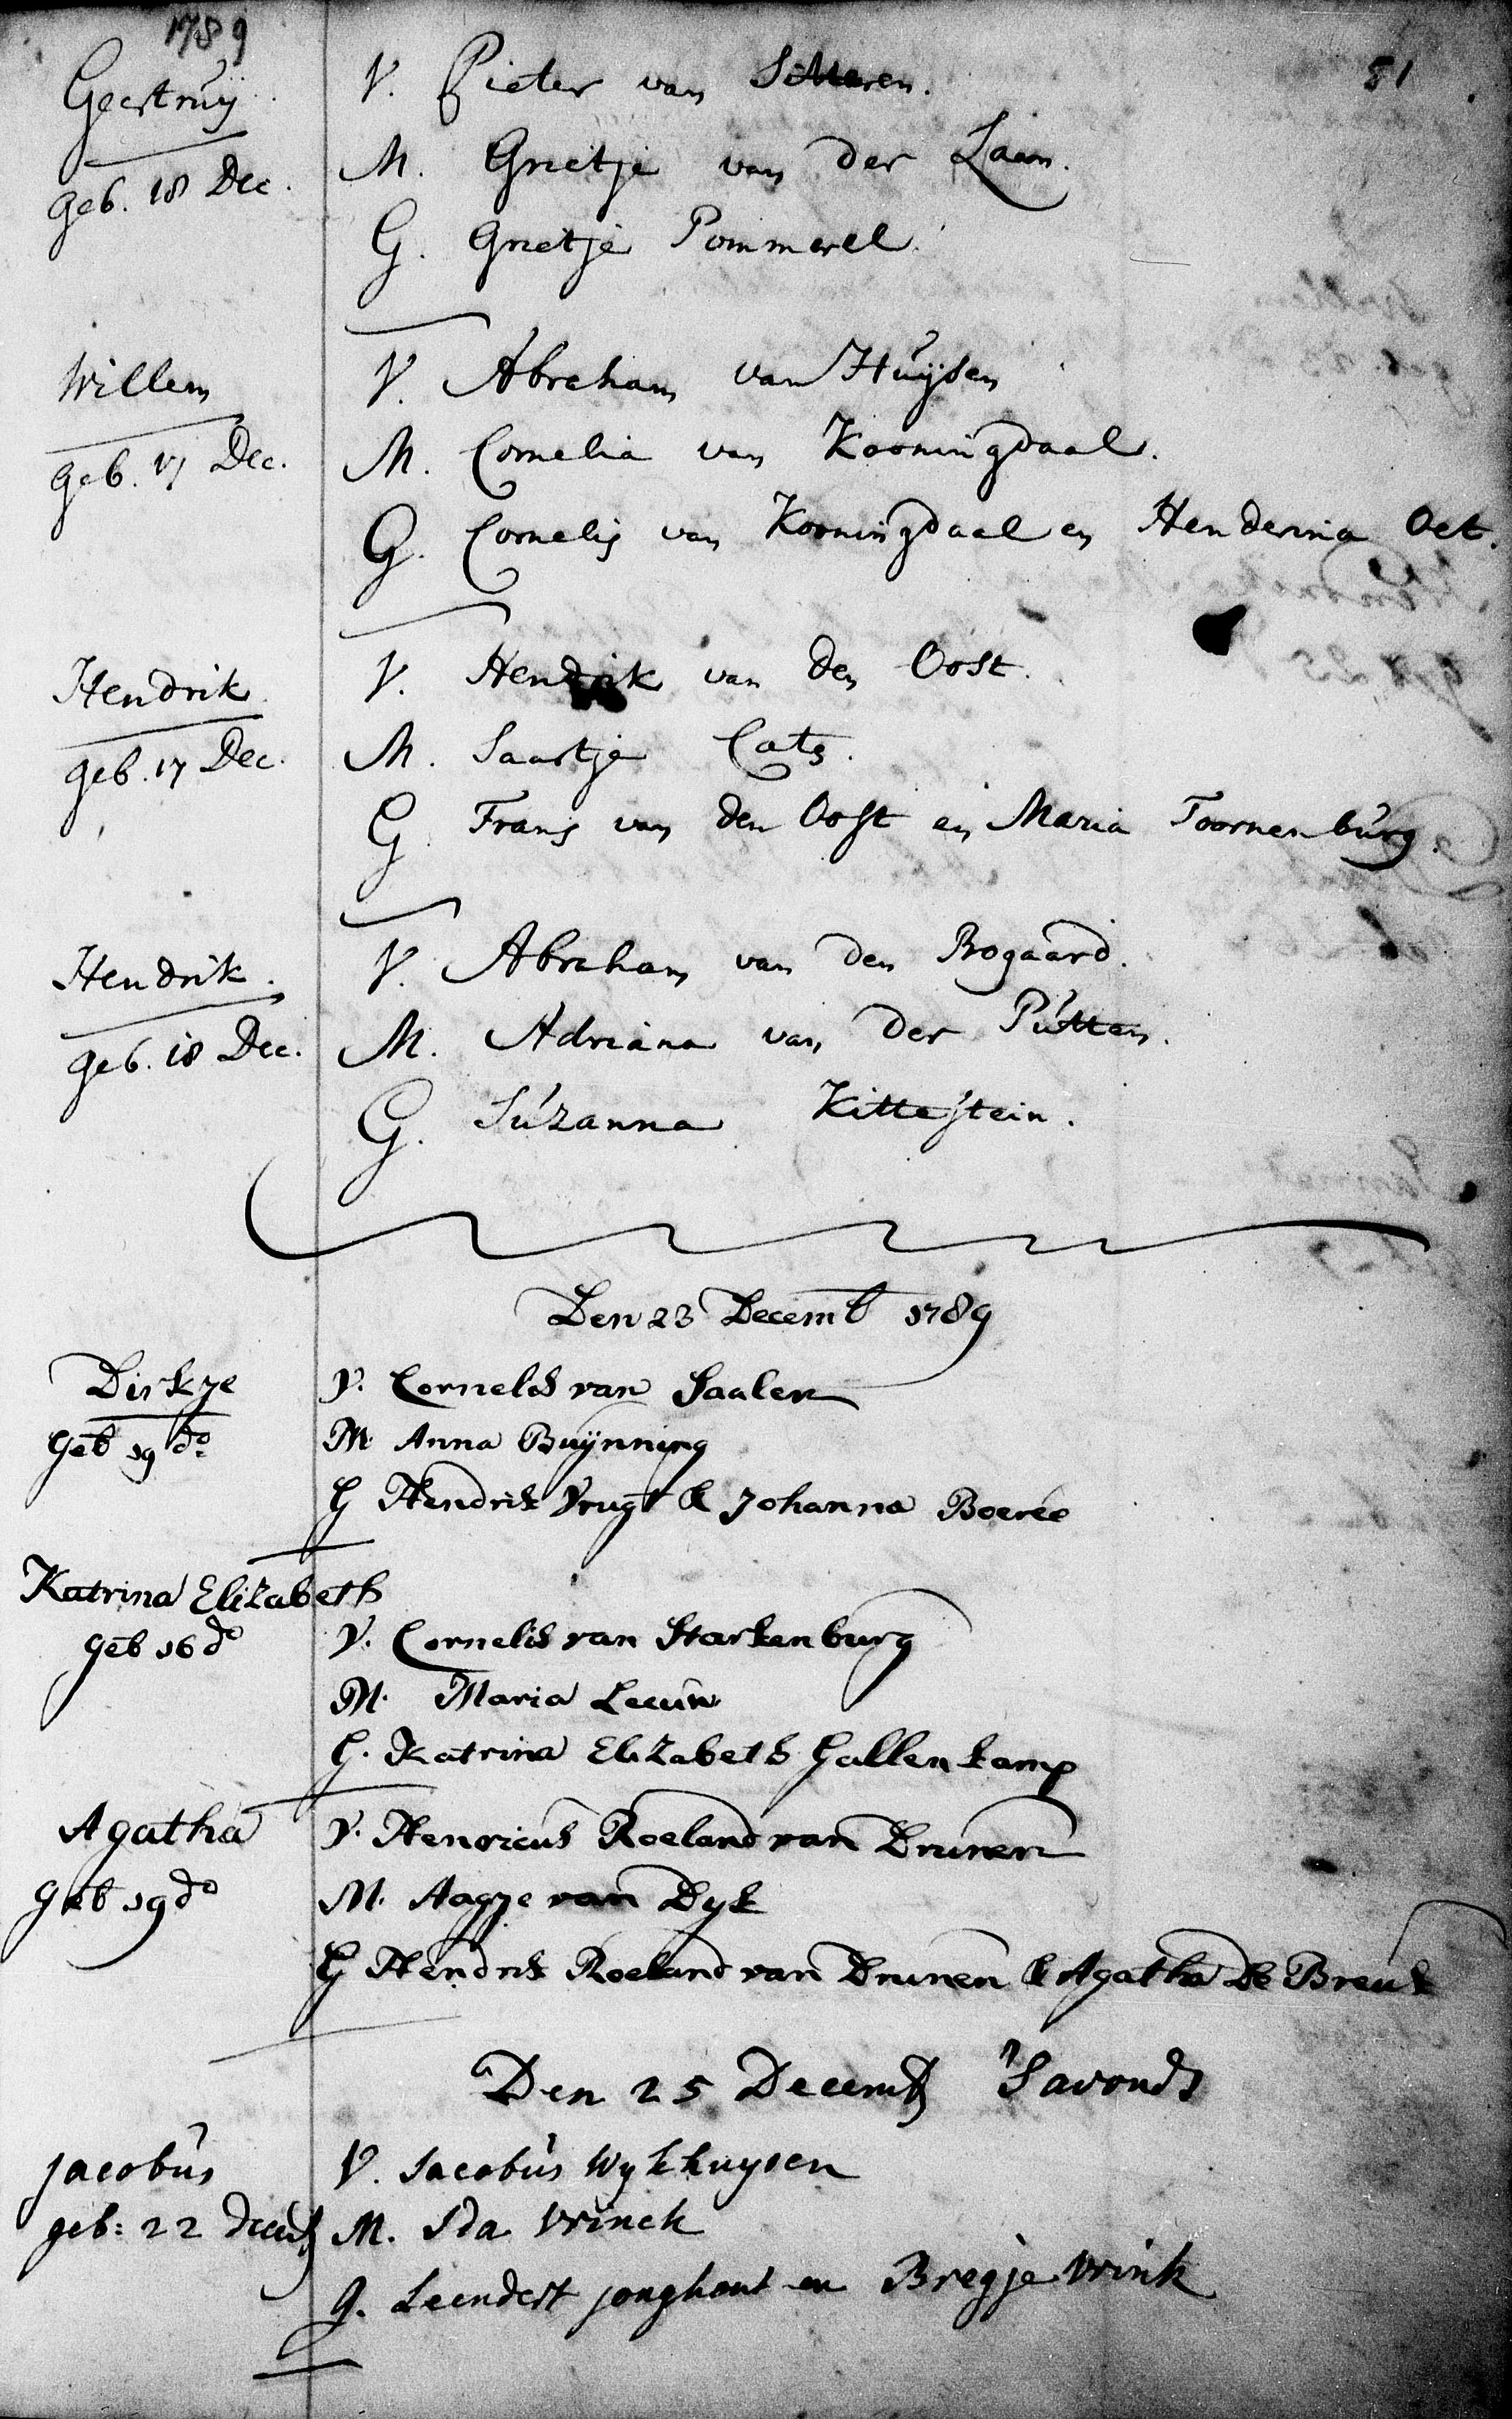 1789
51
Geertruij
V. Pieter van Sitteren.
geb. 18 Dec.
M. Grietje van der Laan.
G. Grietje Pommerel.
Willem
V. Abraham van Huijsen
geb. 17 Dec.
M. Cornelia van Kooningdaal.
G. Cornelis van Kooningdaal en Henderina Oet.
Hendrik
V. Hendrik van den Oost.
geb. 17 Dec.
M. Saartje Cats.
G Frans van den Oost en Maria Toornenburg.
Hendrik.
V. Abraham van den Bogaard.
geb. 18 Dec.
M. Adriana van der Putten.
G. Suzanna Kittestein.
Den 23 Decemb 1789
Dirkje
V. Cornelis van Saalen
geb 19 do
M Anna Buijnning
G Hendrik Vrugt & Johanna Boerée
Katrina Elizabeth
geb 16 do
V. Cornelis van Starkenburg
M. Maria Leeun
G. Katrina Elizabeth Gallenkamp
Agatha
V. Henricus Roeland van Drunen
geb 19 do
M. Aagje van Dyk
G Hendrik Roeland van Drunen & Agatha De Breuk
Den 25 Decemb 'Savonds
Jacobus
V. Jacobus Wykhuysen
geb: 22 decemb
M. Ida Vrinck
G. Leendert Jonghout en Bregje Vrink